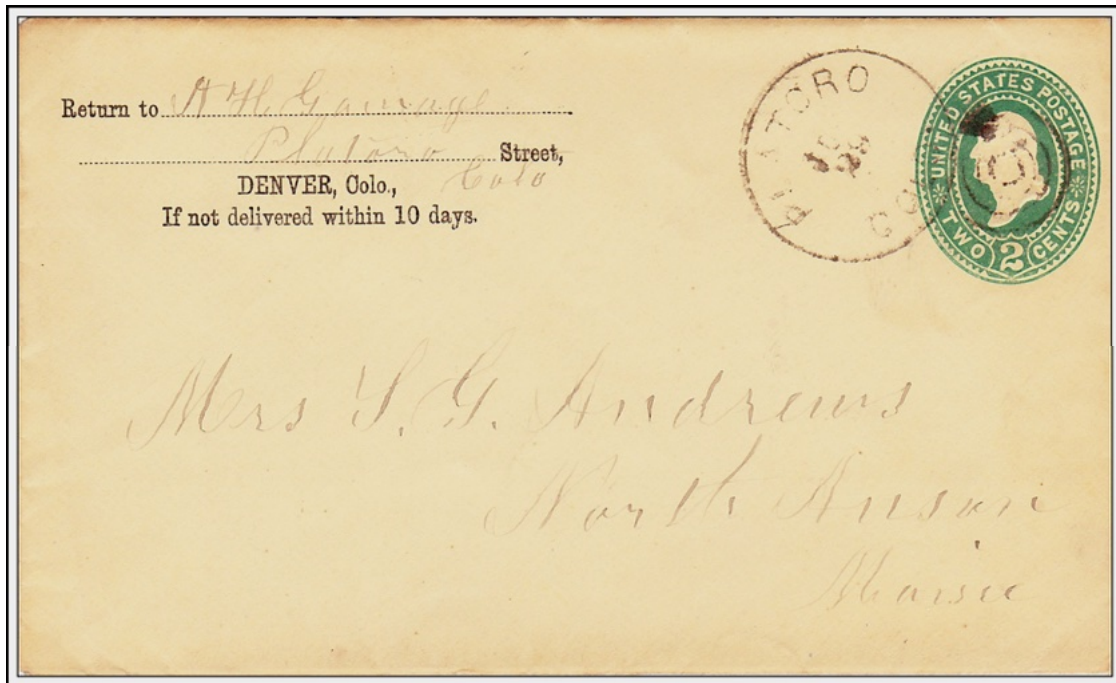 Return to A H Gamage
Platoro Street,
DENVER, Colo., Colo
If not delivered within 10 days.
PLATORO
COLO
UNITED STATES POSTAGE
TWO 2 CENTS
Mrs S. G. Andrews
North Anson
Maine